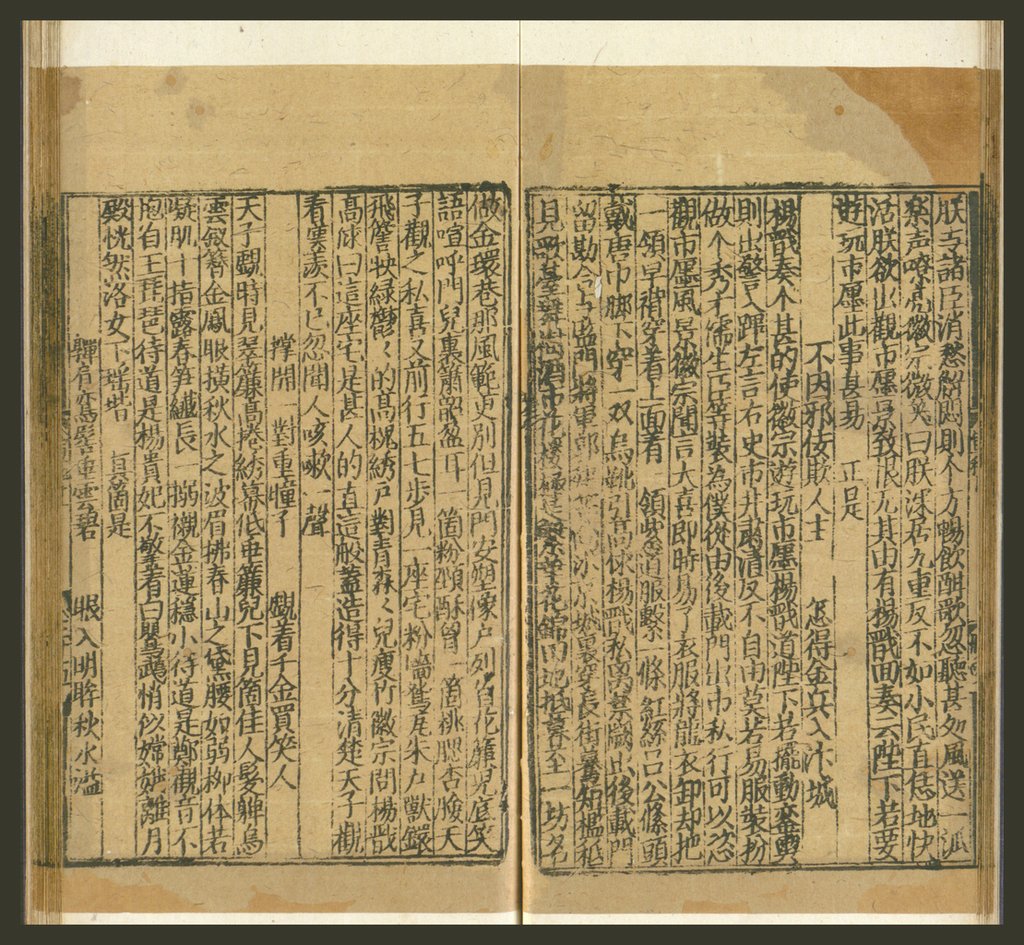 朕与諸臣消愁解悶則个方暢飲酣歌忽聽甚処風送一派
樂声嘹亮徽宗微笑曰朕深居九重反不如小民直恁地快
活朕欲出觀市廛景致恨无其由有楊戩回奏云陛下若要
遊玩市廛此事甚易 正是
不因邪佞欺人主 怎得金兵入汴城
楊戩奏个甚的使徽宗遊玩市廛楊戩道陛下若擺動鑾輿
則出警入蹕左言右史市井肅清反不自由莫若易服裝扮
做个秀才儒生臣等裝為僕從由後載門出市私行可以恣
觀市廛風景徽宗聞言大喜即時易了衣服將龍衣卸却把
一領皂褙穿着上面着一領紫道服繫一條紅絲呂公絛頭
戴唐巾脚下穿一双烏靴引高俅楊戩私离禁闕出後載門
留勘合与監門將軍郎 穿長街驀短檻秪
見歌臺舞 酒市花樓 抵暮至一坊名
做金環巷那風範更別但見門安塑像戶列百花簾兒底笑
語喧呼門兒裏簫韶盈耳一箇粉頸酥胸一箇桃腮杏臉天
子觀之私喜又前行五七步見一座宅粉墻鴛瓦朱戶獸鐶
飛簷映綠鬱々的高槐綉戶對青森々兒瘦竹徽宗問楊戩
高俅曰這座宅是甚人的直這般蓋造得十分清楚天子觀
看寒羨不已忽聞人咳嗽一聲
撑開一對重瞳子 覷着千金買笑人
天子覷時見翠簾高捲綉幕低垂簾兒下見箇佳人髮軃烏
雲釵簪金鳳眼橫秋水之波眉拂春山之黛腰如弱柳体若
凝肌十指露春笋纖長一搦襯金蓮穩小待道是鄭觀音不
抱白玉琵琶待道是楊貴妃不擎着白鸚鵡悄似嫦娥離月
殿恍然洛女下瑤堦 真箇是
軃肩鸞髻垂雲碧 眼入明眸秋水溢